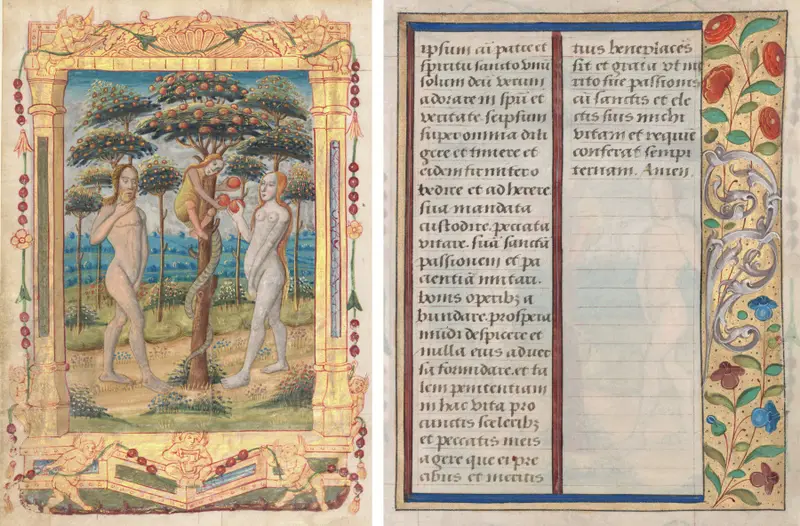 ipsum cū patre et
spiritu sancto vnū
solum deū verum
adorare in spū et
veritate seipsum
super omnia dili
gere et timere et
eidem firmiter o
bedire et adherere.
sua mandata
custodire. peccata
vitare. suā sanctā
passionem et pa
cientiā imitari.
bonis operibꝫ a
bundare. prospera
mūdi despicere et
nulla eius aduer
sa formidare. et ta
lem penitentiam
in hac vita pro
cunctis sceleribꝫ
et peccatis meis
agere que ei pre
cibus et meritis
tuis beneplacēs
sit et grata vt me
rito sue passionis
cū sanctis et ele
ctis suis michi
vitam et requiē
conferat sempi
ternam. Amen.